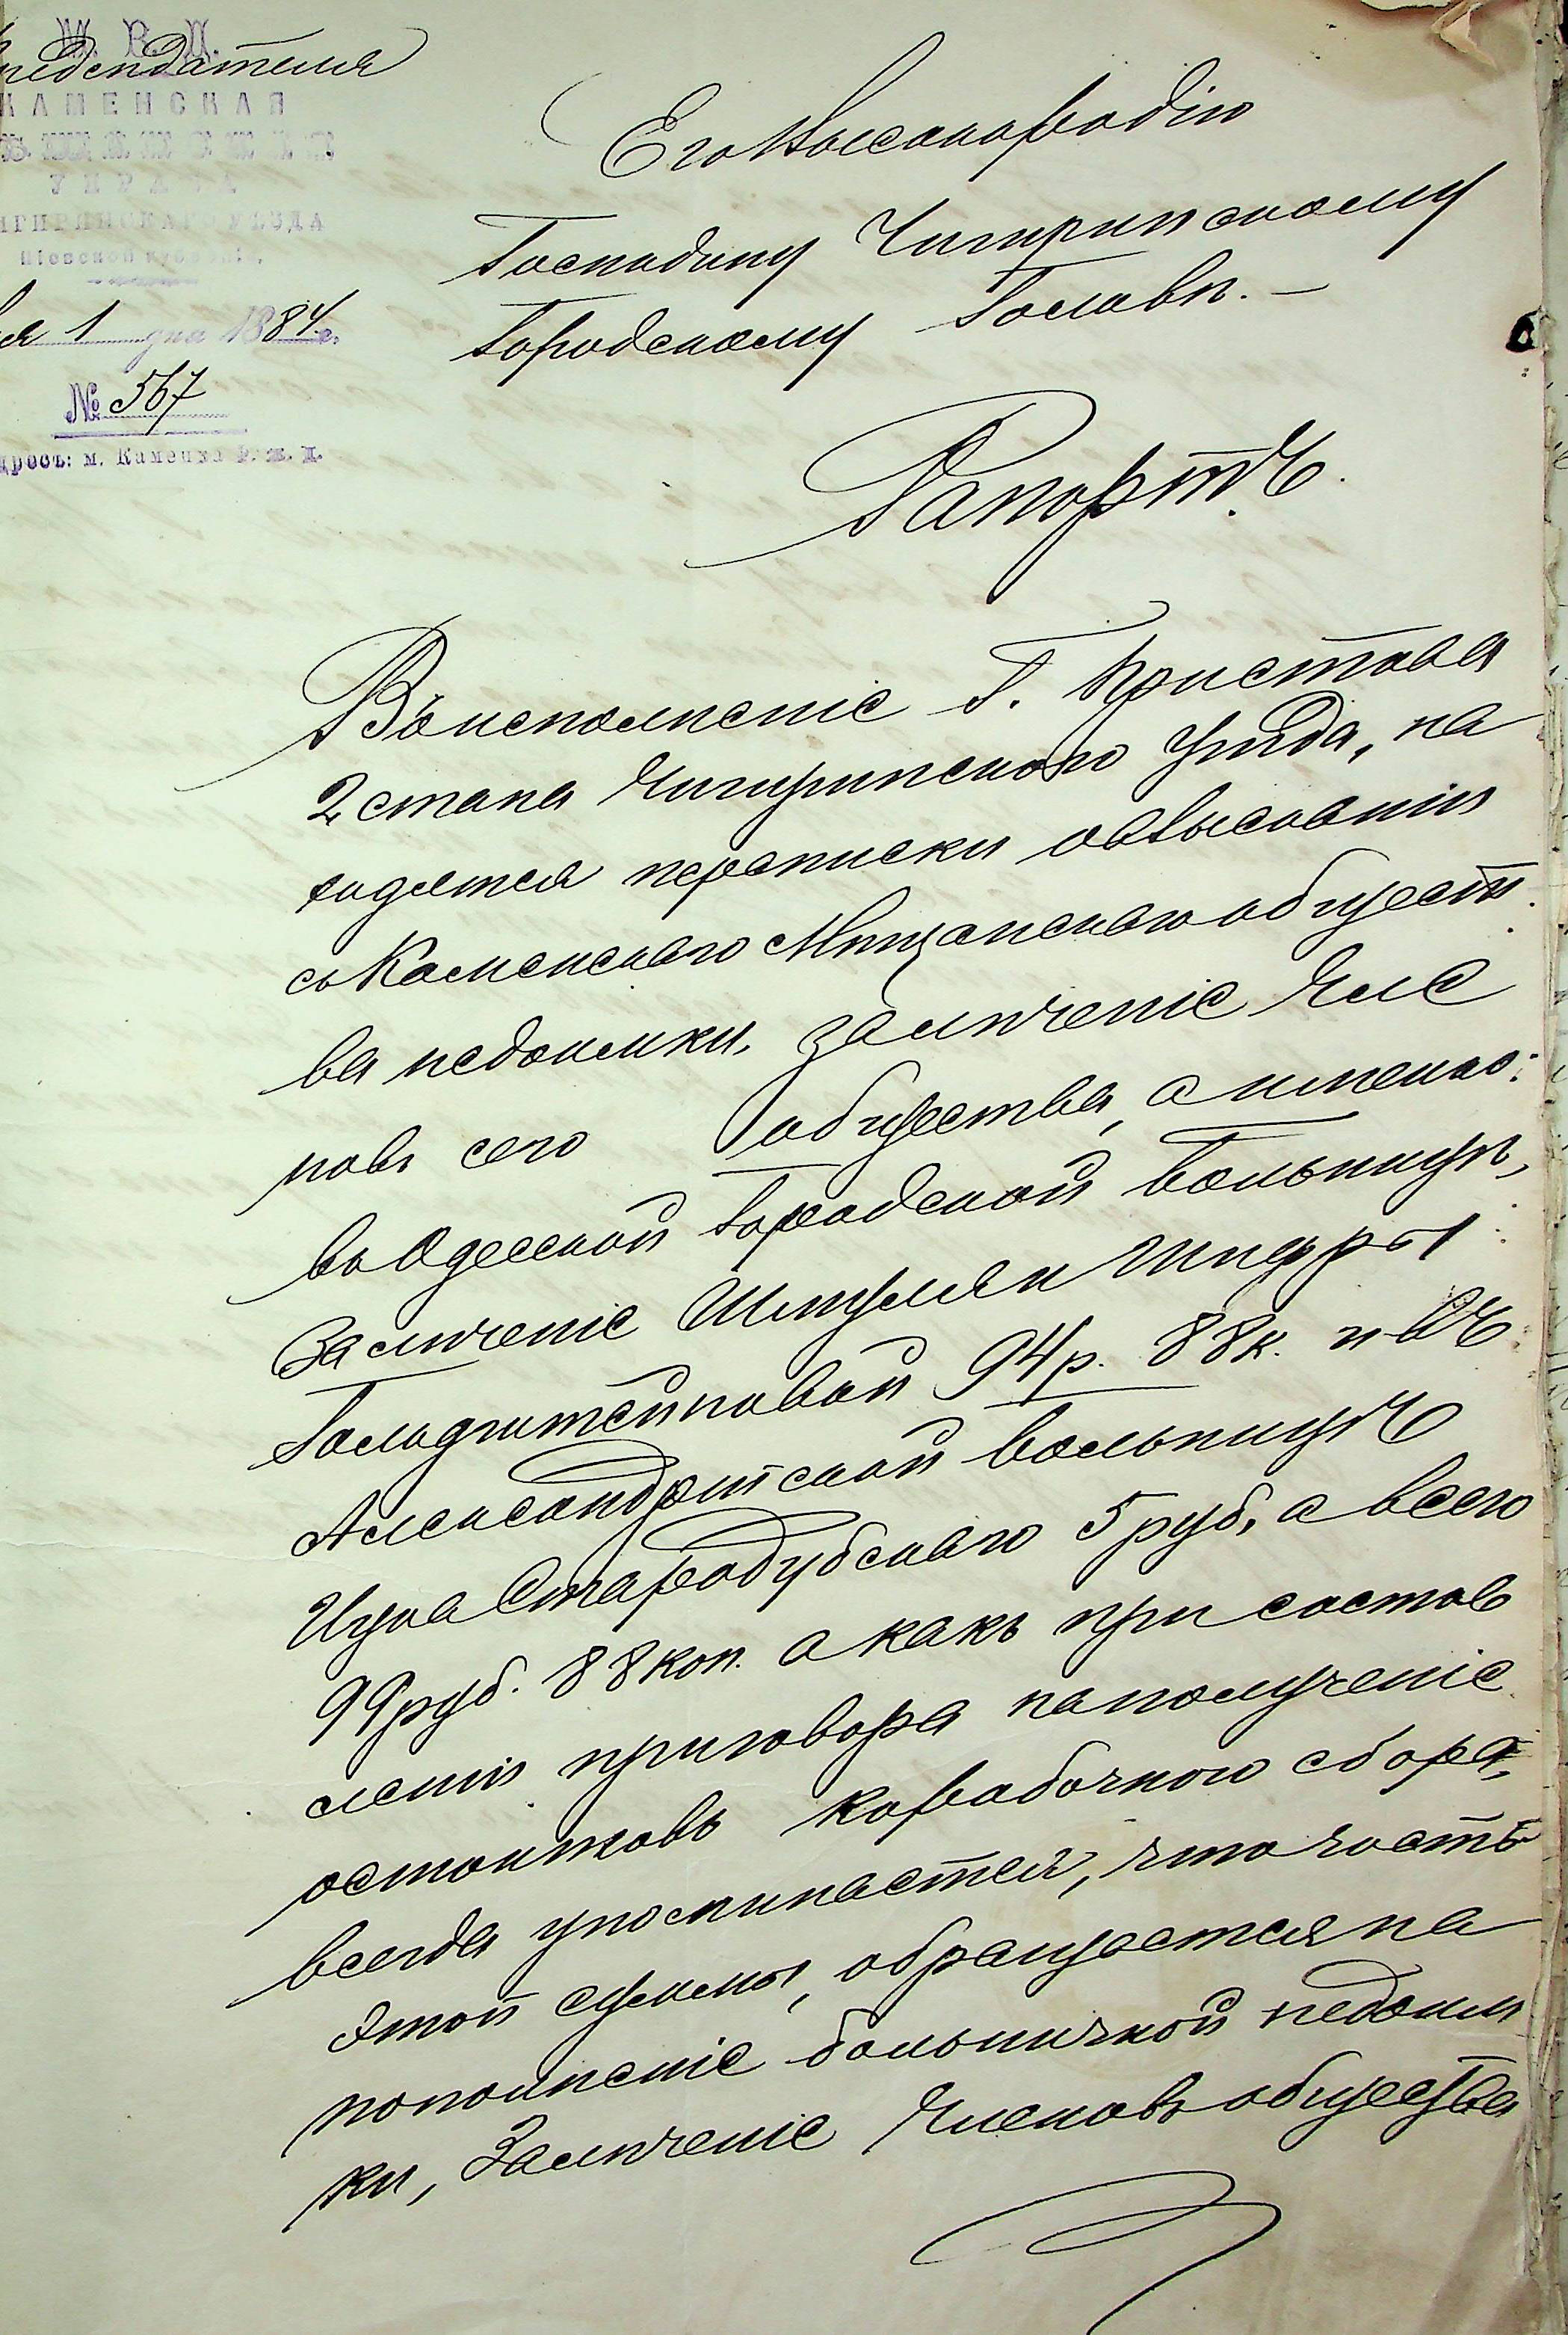 М. В. Д.
Председателя
КАМЕНСКАЯ
УПРАВА
ЧИГИРИНСКАГО УѢЗДА
Кіевской губерніи.
1 дня 1884 г.
№ 567
Адресъ: м. Каменка Ф. ж. д.
Его Высокородію
Господину Чигиринскому
Городскому Головѣ. —
Рапортъ.
Въ исполненіе Г. Пристава
2 стана Чигиринского уѣзда, на
ходятся переписки о взысканіи
съ Каменскаго Мѣщанскаго общест
ва недоимки, за леченіе чле
новъ сего общества, а именно:
въ Одесской Городской больницѣ,
За леченіе
Гольдштейновой 94 р. 88 к. и въ
Александрійской больницѣ
Ицка Стародубскаго 5 руб, а всего
99 руб. 88 коп. а какъ при состав
леніи приговора на полученіе
остатковъ коробочнаго сбора,
всегда упоминается, что часть
этой суммы, обращается на
пополненіе больничной недоим
ки, За леченіе Членовъ общества